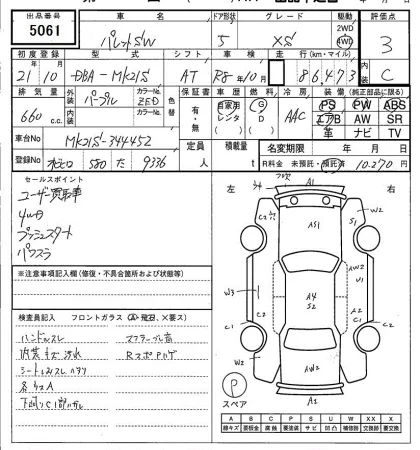 出品番号 車名 ドア形状 グレード 駆動 評価点
5061 パレットSW 5 XS 2WD 4WD 3
初度登録 型式 シフト 車検 走行(km・マイル)
21 10 DBA-MK21S AT R8年10月 86473 C
排気量 外装 カラーNo. 色替 保証書 車歴 燃料 冷房 装備(純正部品に限る)
660 c.c. パープル ZED 有・無 自家用 レンタ G D AAC PS PW ABS
内装 カラーNo. エアB AW SR
革 ナビ TV
車台No MK21S-344452 定員 人 積載量 t 名変期限 年 月 日
登録No 580 た 9336 R料金 未預託・預託済 10,270円
セールスポイント
ユーザー買取車
4WD
プッシュスタート
パワスラ
左 右
A1
W2
C2
S1
AS1
W2
U1
W3
A4
S2
C1
C1
C2
C2
W2
AW2
A1
P
スペア
※注意事項記入欄(修復・不具合箇所および状態等)
検査員記入 フロントガラス (A、飛石、X要ス)
ハンドルスレ マフラーサビ有
内装キズ汚れ
シートシミスレ
各々A
A B C P S U W X XX
線キズ 要板金 腐蝕 要塗装 サビ 凹凸 補修跡 要交換 交換跡